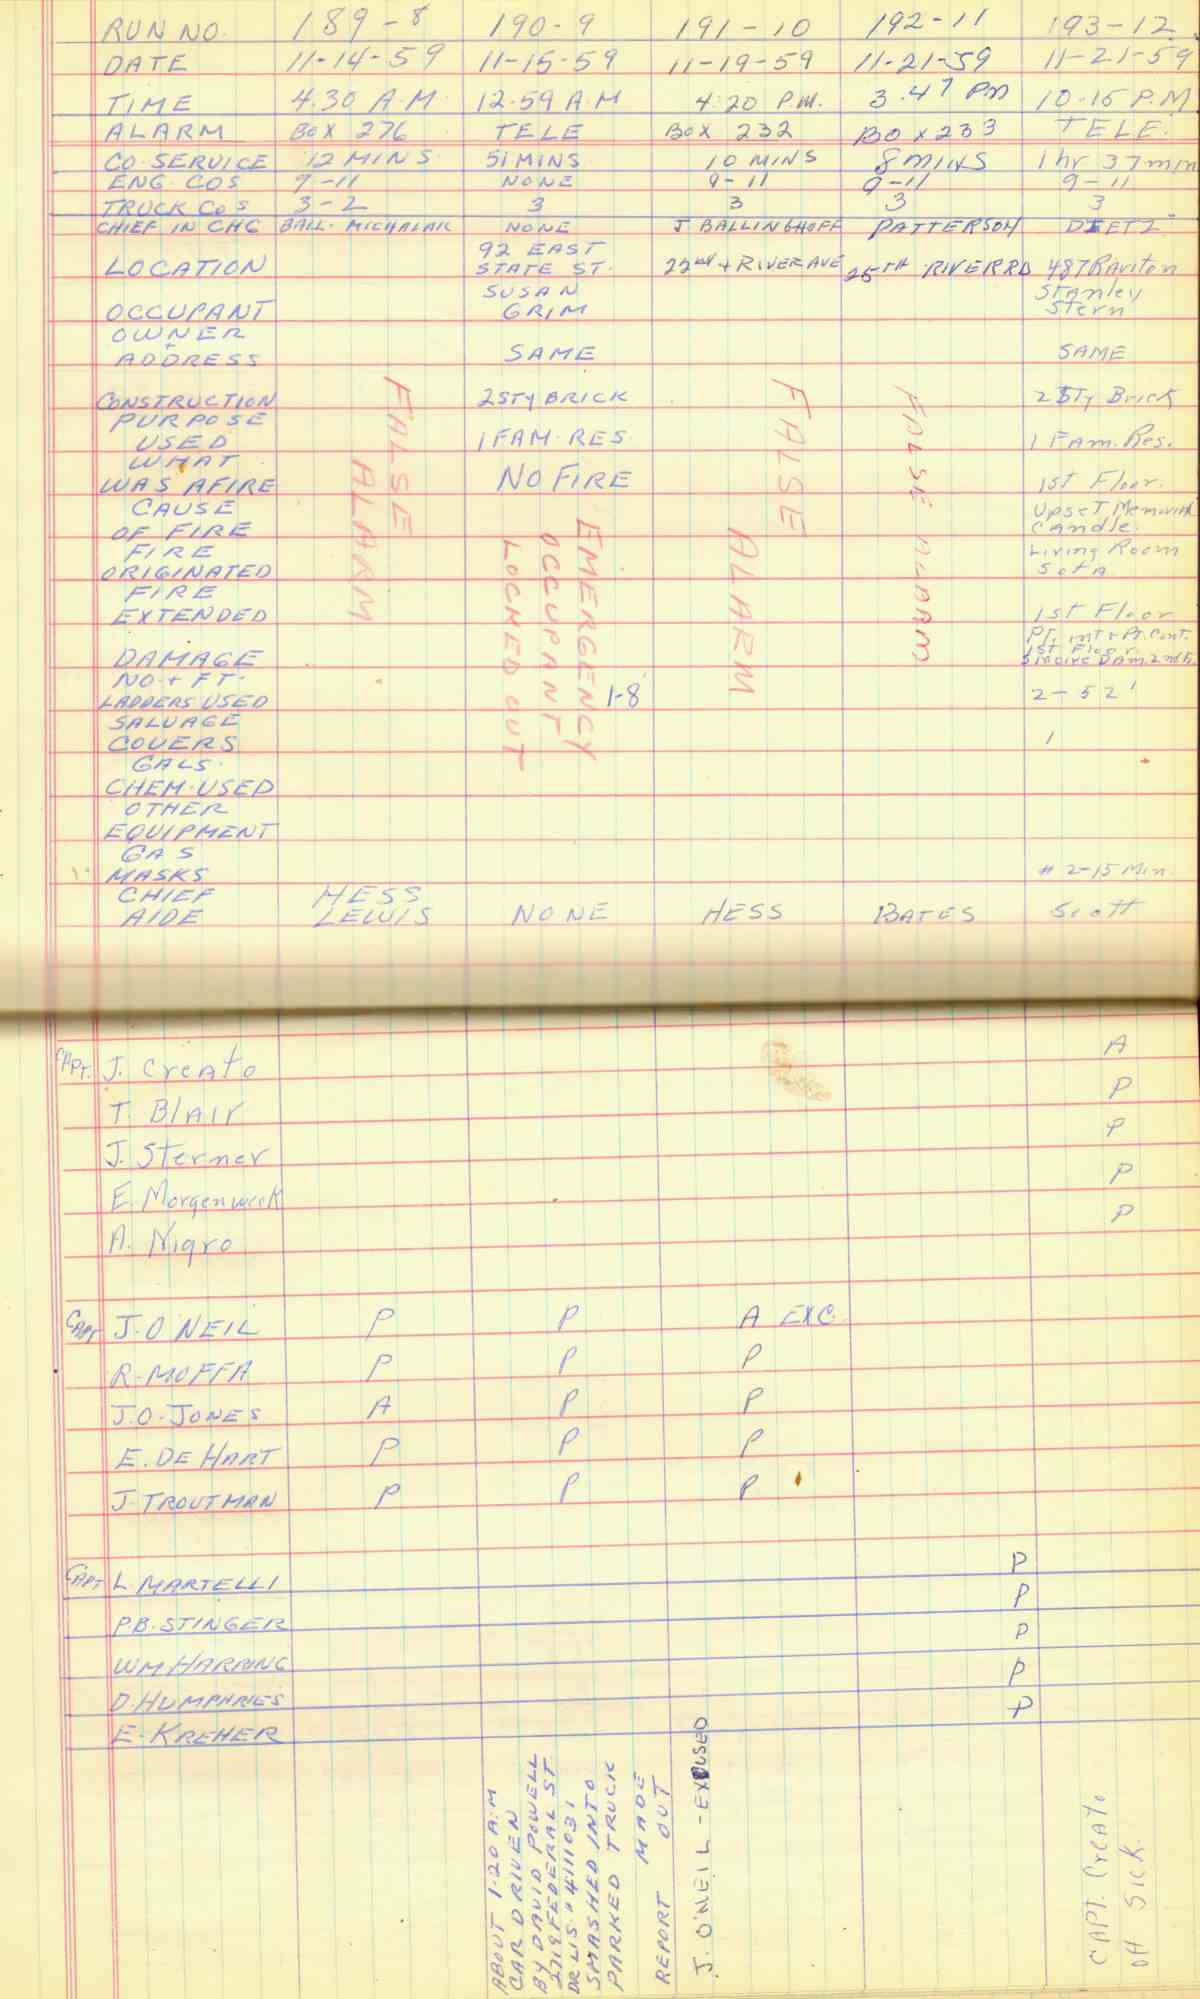 RUN NO. 189-8 190-9 191-10 192-11 193-12
DATE 11-14-59 11-15-59 11-19-59 11-21-59 11-21-59
TIME 4.30 A.M. 12.59 A.M 4:20 P.M. 3.47 PM 10-15 P.M
ALARM BOX 276 TELE BOX 232 BOX 233 TELE.
CO. SERVICE 12 MINS. 51 MINS 10 MINS 8 MINS 1 hr 37 min
ENG. COS 9-11 NONE 9-11 9-11 9-11
TRUCK COS 3-2 3 3 3 3
CHIEF IN CHG BALL. MICHALAK NONE J BALLINGHOFF PATTERSON DIETZ
92 EAST
LOCATION STATE ST. 22nd + RIVER AVE 25TH RIVER RD 487 Raritan
SUSAN Stanley
OCCUPANT GRIM Stern
OWNER
+
ADDRESS SAME SAME
CONSTRUCTION 2 STY BRICK 2 STy Brick
PURPOSE
USED 1 FAM. RES. 1 Fam. Res.
WHAT
WAS AFIRE NO FIRE 1st Floor.
CAUSE Upset Memorial
OF FIRE Candle.
FIRE Living Room
ORIGINATED Sofa
FIRE
EXTENDED 1st Floor
Pt. Int + Pt. Cont.
1st Floor
DAMAGE Smoke Dam. 2nd Fl.
NO + FT.
LADDERS USED 1-8' 2-52'
SALVAGE
COVERS 1
GALS.
CHEM. USED
OTHER
EQUIPMENT
GAS
MASKS # 2-15 Min.
CHIEF HESS
AIDE LEWIS NONE HESS BATES Scott
FALSE
ALARM
EMERGENCY
OCCUPANT
LOCKED OUT
FALSE
ALARM
FALSE ALARM
CAPT. J. Creato A
T. Blair P
J. Sterner P
E. Morgenweck P
A. Nigro P
CAPT J. O'NEIL P P A EXC.
R. MOFFA P P P
J. O. JONES A P P
E. DE HART P P P
J. TROUTMAN P P P
CAPT L. MARTELLI P
P.B. STINGER P
WM HARRING P
D. HUMPHRIES P
E. KREHER P
ABOUT 1.20 A.M
CAR DRIVEN
BY DAVID POWELL
2719 FEDERAL ST
DR LIS. # 4111031
SMASHED INTO
PARKED TRUCK
REPORT MADE
OUT
J. O'NEIL - EXCUSED
CAPT. Creato
Off Sick.